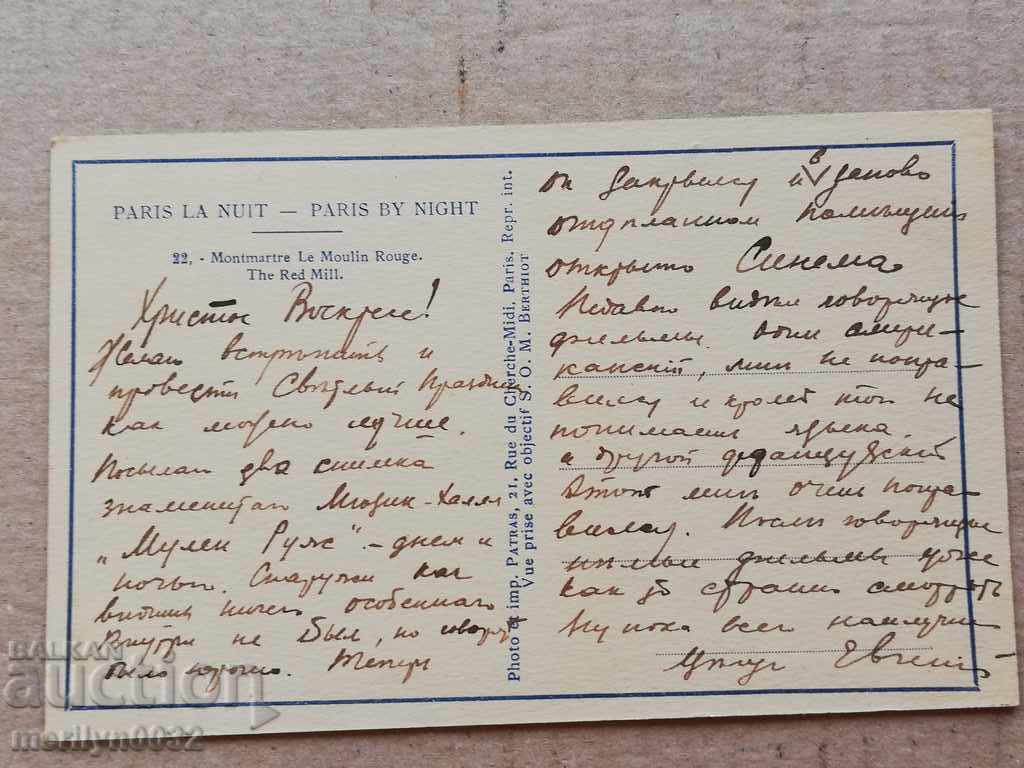 PARIS LA NUIT — PARIS BY NIGHT
22, - Montmartre Le Moulin Rouge.
The Red Mill.
Христос Воскресе!
Желаю встрѣтить и
провести Свѣтлый Праздник
как можно лучше.
Посылаю два снимка
знаменитаго Мюзик-Холля
"Мулен Руж" - днем и
ночью. Снаружи как
видишь ничего особеннаго
Внутри не был, но говорят
было хорошо. Теперь
Photo et imp. PATRAS, 21, Rue du Cherche-Midi, Paris. Repr. int.
Vue prise avec objectif S. O. M. BERTHIOT
он закрылся и в заново
помѣщении
открыто Синема
Недавно видѣл говорящие
фильмы. один амери-
канский, мнѣ не понра-
вился и кромѣ того не
понимаешь языка,
а другой французский
Этот мнѣ очень понра-
вился. Послѣ говорящих
нѣмые фильмы уже
как то странно смотрѣть
Ну пока всего наилучш
Цѣлую Евгений
BALKAN
auction
merilyn0032